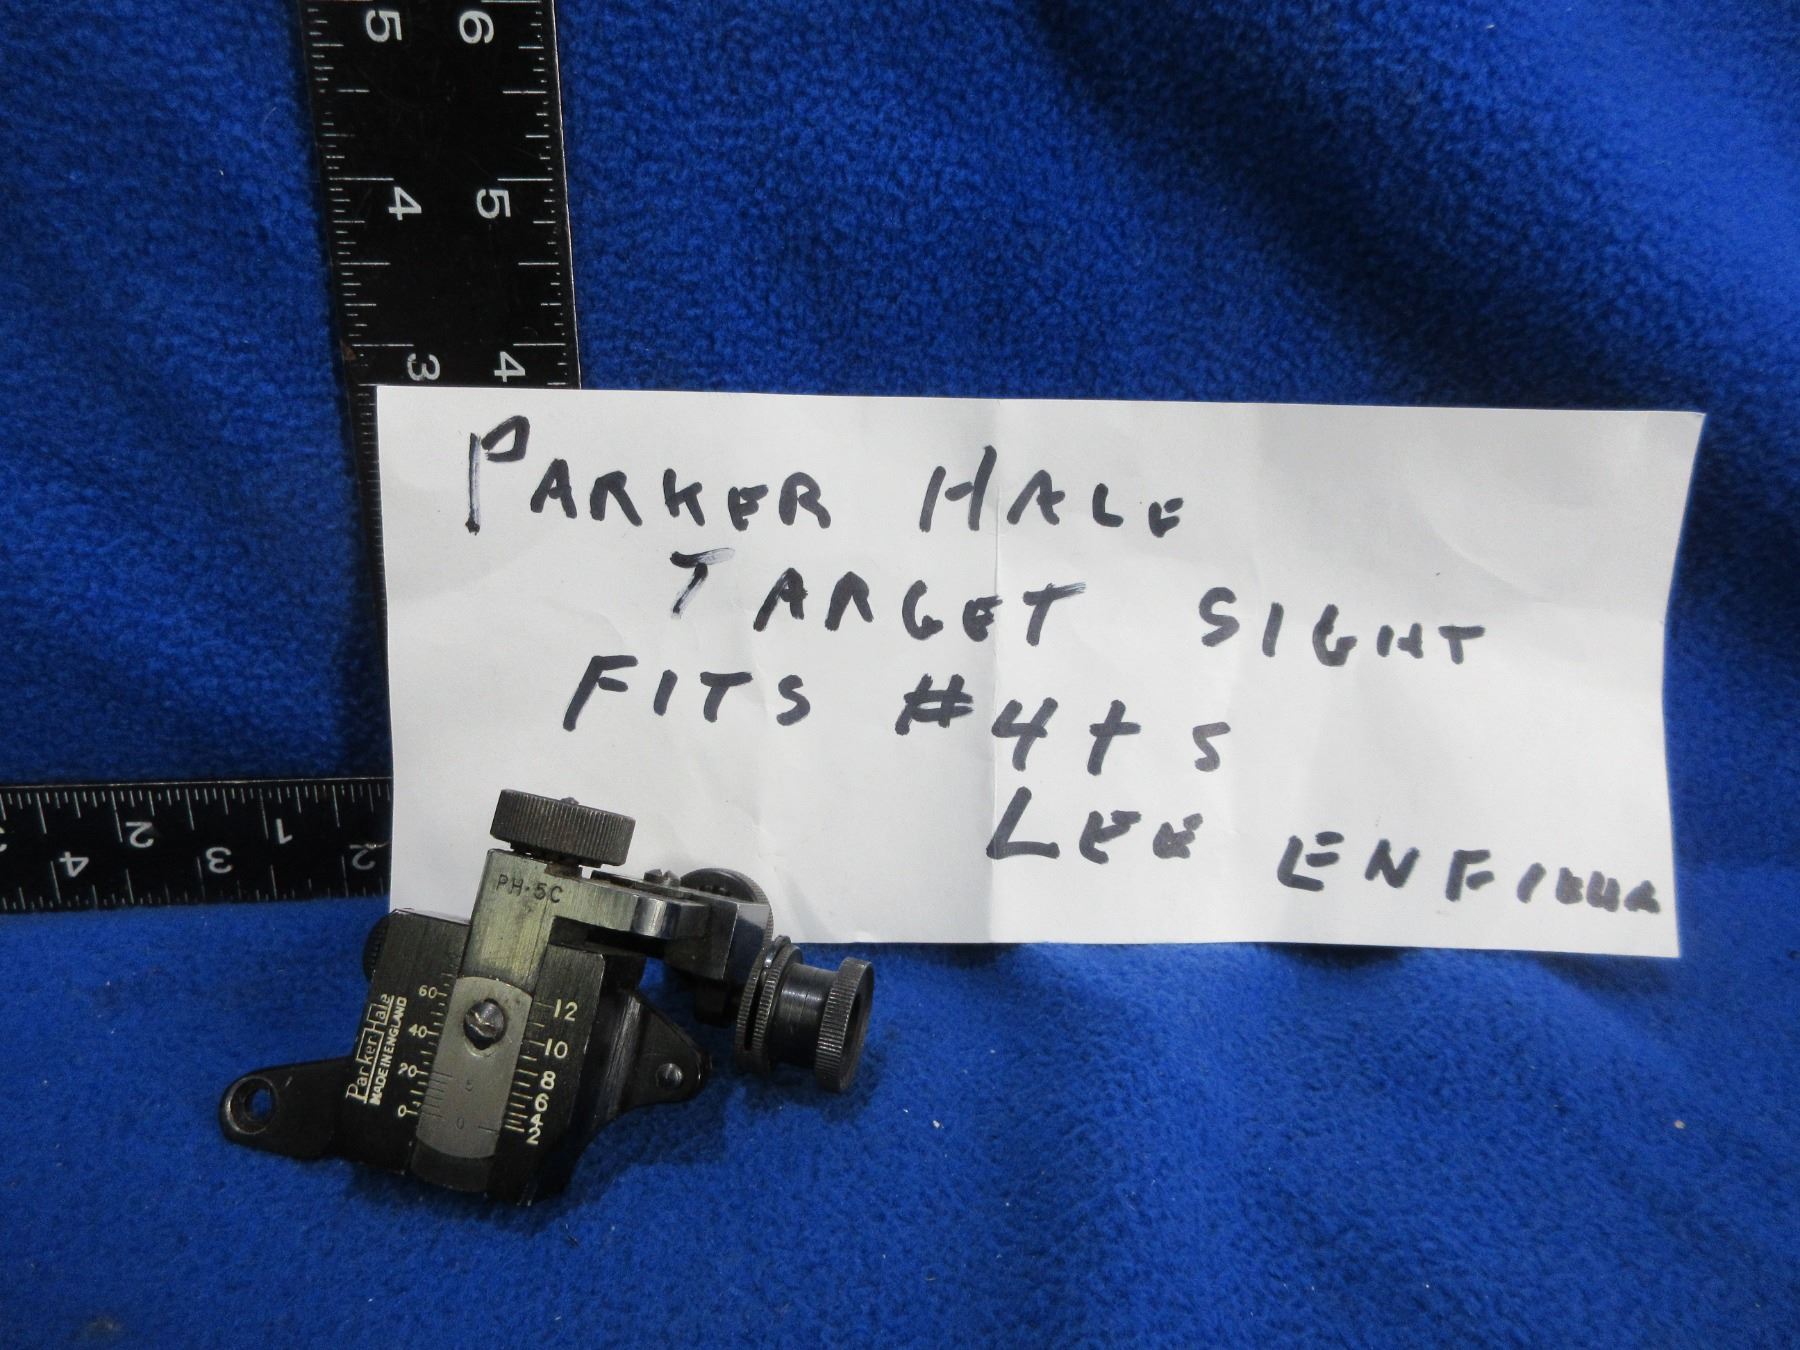 5 6
4 5
3 4
PARKER HALE
TARGET SIGHT
FITS #4 + 5
LEE
2 1
4 3 2
PH·5C
Parker Hale
MADE IN ENGLAND
60
40
20
0
5
0
12
10
8
6
4
2